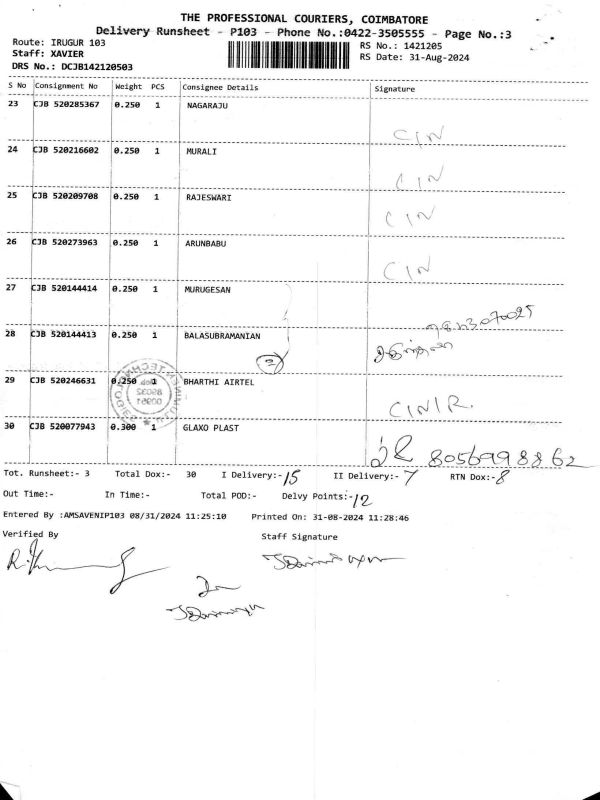 THE PROFESSIONAL COURIERS, COIMBATORE
Delivery Runsheet - P103 - Phone No.:0422-3505555 - Page No.:3
Route: IRUGUR 103 RS No.: 1421205
Staff: XAVIER RS Date: 31-Aug-2024
DRS No.: DCJB142120503
S No Consignment No Weight PCS Consignee Details Signature
23 CJB 520285367 0.250 1 NAGARAJU
CIN
24 CJB 520216602 0.250 1 MURALI
CIN
25 CJB 520209708 0.250 1 RAJESWARI
CIN
26 CJB 520273963 0.250 1 ARUNBABU
CIN
27 CJB 520144414 0.250 1 MURUGESAN
28 CJB 520144413 0.250 1 BALASUBRAMANIAN
2
29 CJB 520246631 0.250 1 BHARTHI AIRTEL
CINIR.
30 CJB 520077943 0.300 1 GLAXO PLAST
8056998862
Tot. Runsheet:- 3 Total Dox:- 30 I Delivery:- 15 II Delivery:- 7 RTN Dox:- 8
Out Time:- In Time:- Total POD:- Delvy Points:- 12
Entered By :AMSAVENIP103 08/31/2024 11:25:10 Printed On: 31-08-2024 11:28:46
Verified By Staff Signature